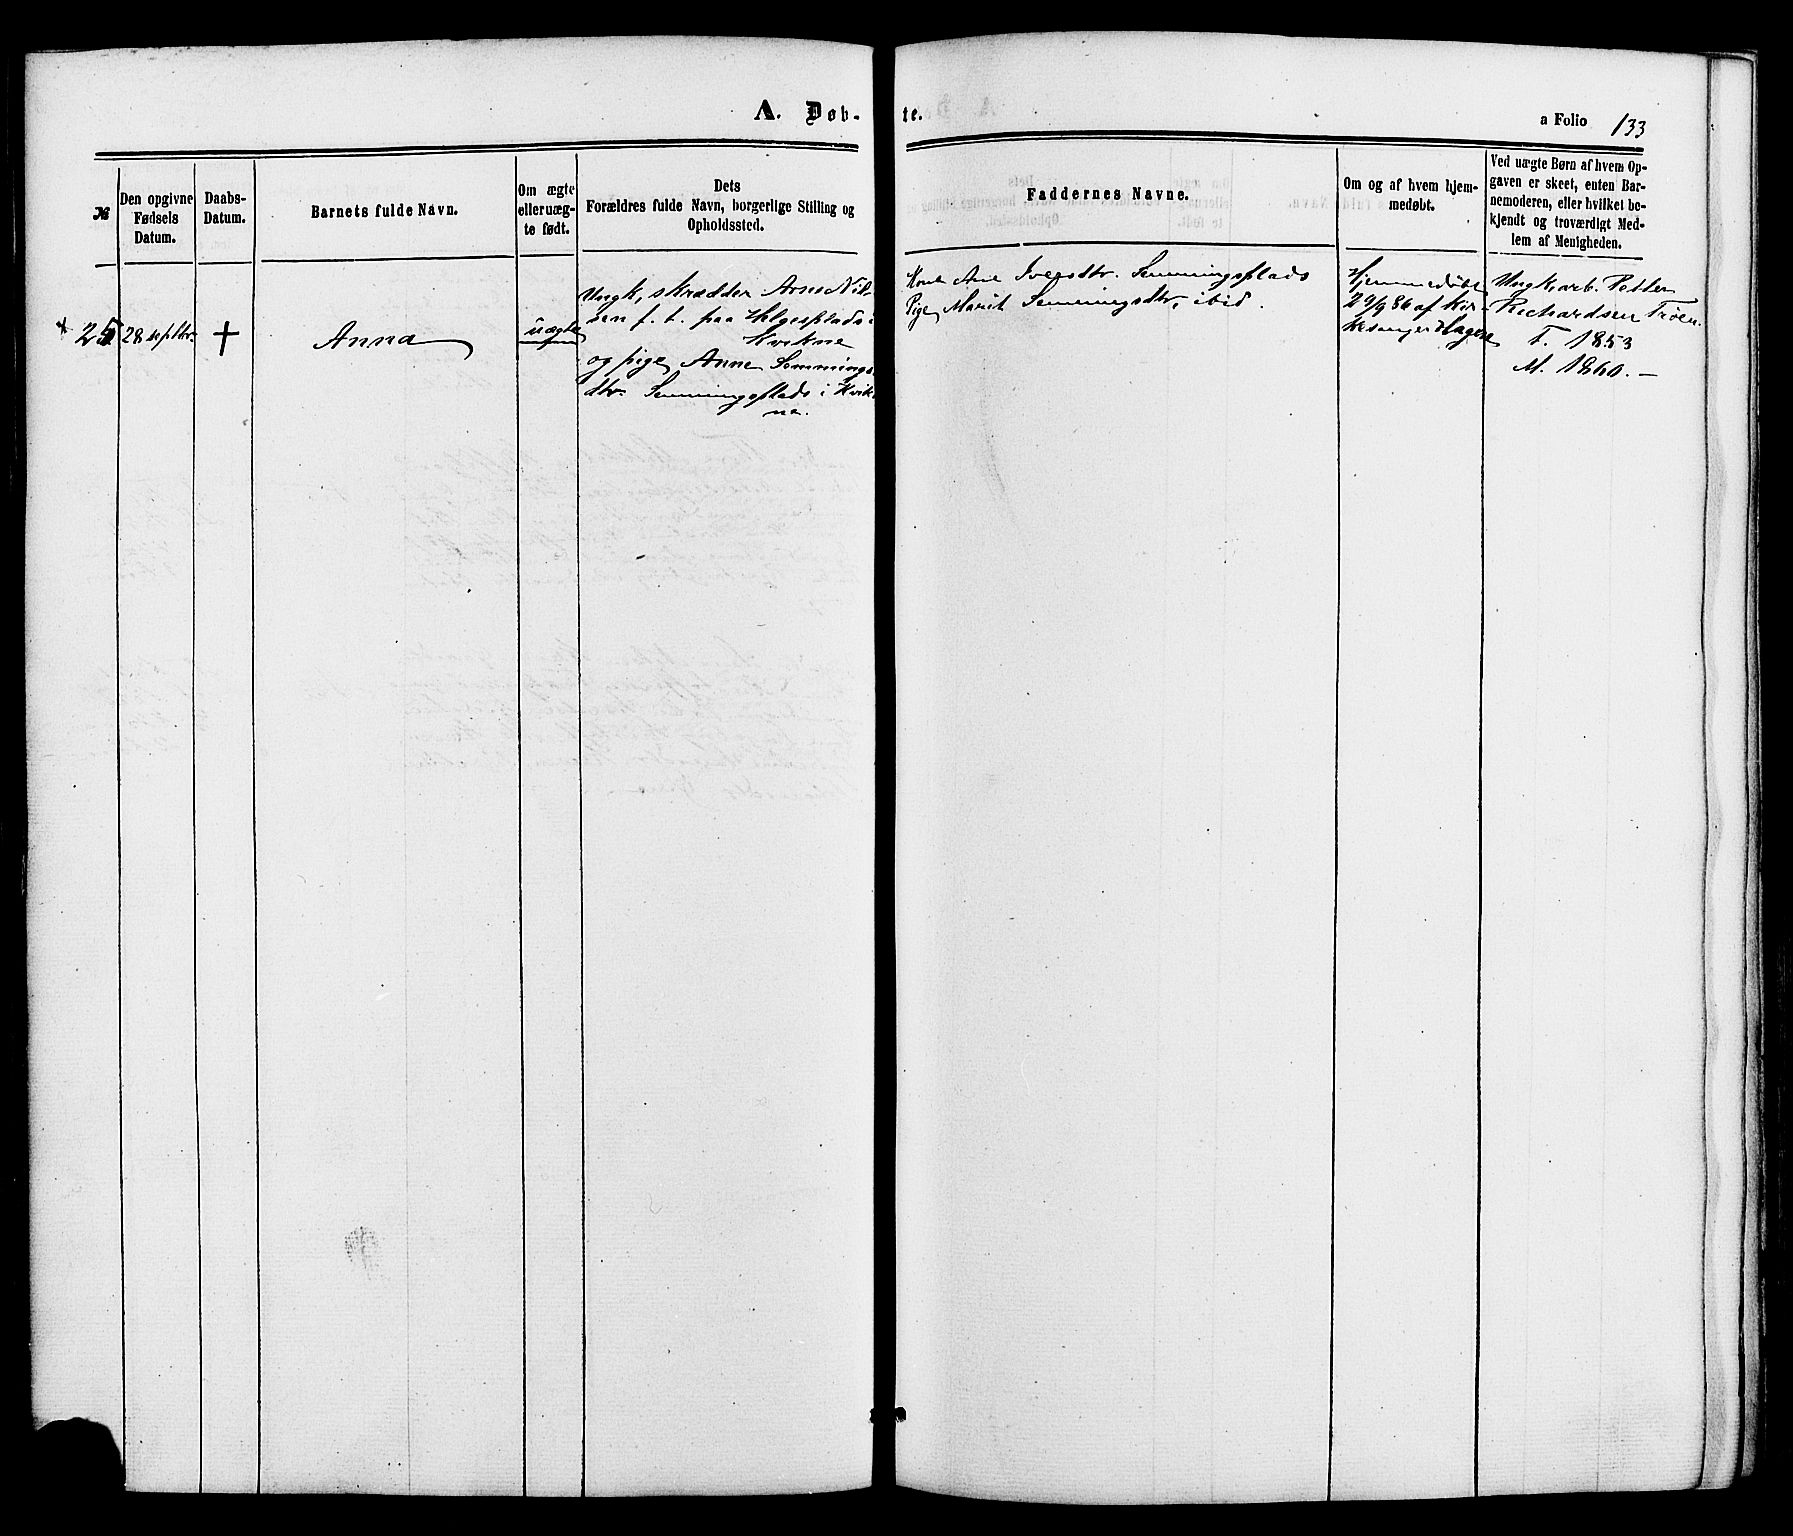 A. Døb-
te.
a Folio 133
№
Den opgivne
Fødsels
Datum.
Daabs-
Datum.
Barnets fulde Navn.
Om ægte
eller uæg-
te født.
Dets
Forældres fulde Navn, borgerlige Stilling og
Opholdssted.
Faddernes Navne.
Om og af hvem hjem-
medøbt.
Ved uægte Børn af hvem Op-
gaven er skeet, enten Bar-
nemoderen, eller hvilket be-
kjendt og troværdigt Med-
lem af Menigheden.
* 25
28 septbr.
†
Anna
uægte
Ungk, skrædder Arne Nil-
sen f. t. paa Helgesplads i
Kvikne
og pige Anne Semmings
dtr. Semmingsplads i Kvik
ne.
Kone Ane Iversdtr. Semmingsplads
Pige Marit Semmingsdtr, ibid.
Hjemmedøbt
29/9 86 af Kir-
kesanger Hagen
Ungkarl. Petter
Richardsen Trøen.
F. 1853
M. 1860. —